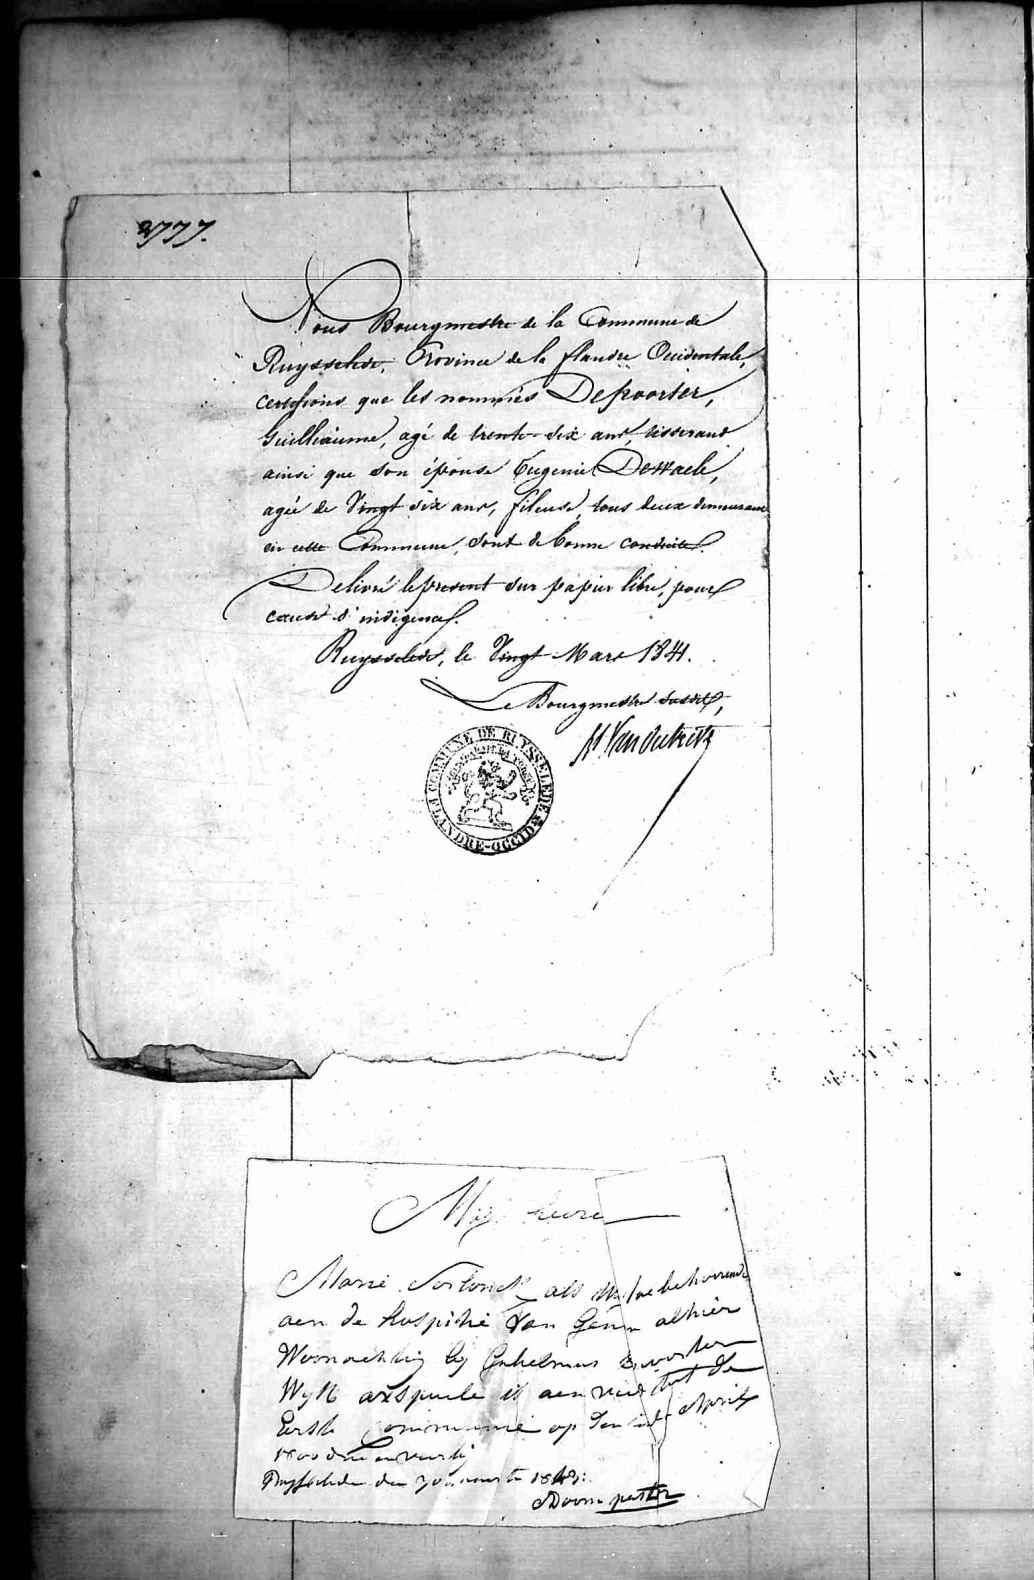 2777.
Nous Bourgmestre de la Commune de
Ruysselede, Province de la flandre Occidentale,
certifions que les nommés Depoorter,
Guilliaume, agé de trente-six ans, tisserand
ainsi que son épouse Eugenie Dewaele,
agée de Vingt six ans, fileuse, tous deux demeurant
en cette Commune, sont de bonne conduite.
Delivré le present sur papier libre, pour
cause d'indigence.
Ruysselede, le Vingt Mars 1841.
Le Bourgmestre susdit,
COMMUNE DE RUYSSELEDE
FLANDRE-OCCID
Marie als toebehoorende
aen de hospitie van alhier
Woonachtig by
Wyk is aen
Eerste Communie op den April
Ruysselede den 30 1843.
pastor